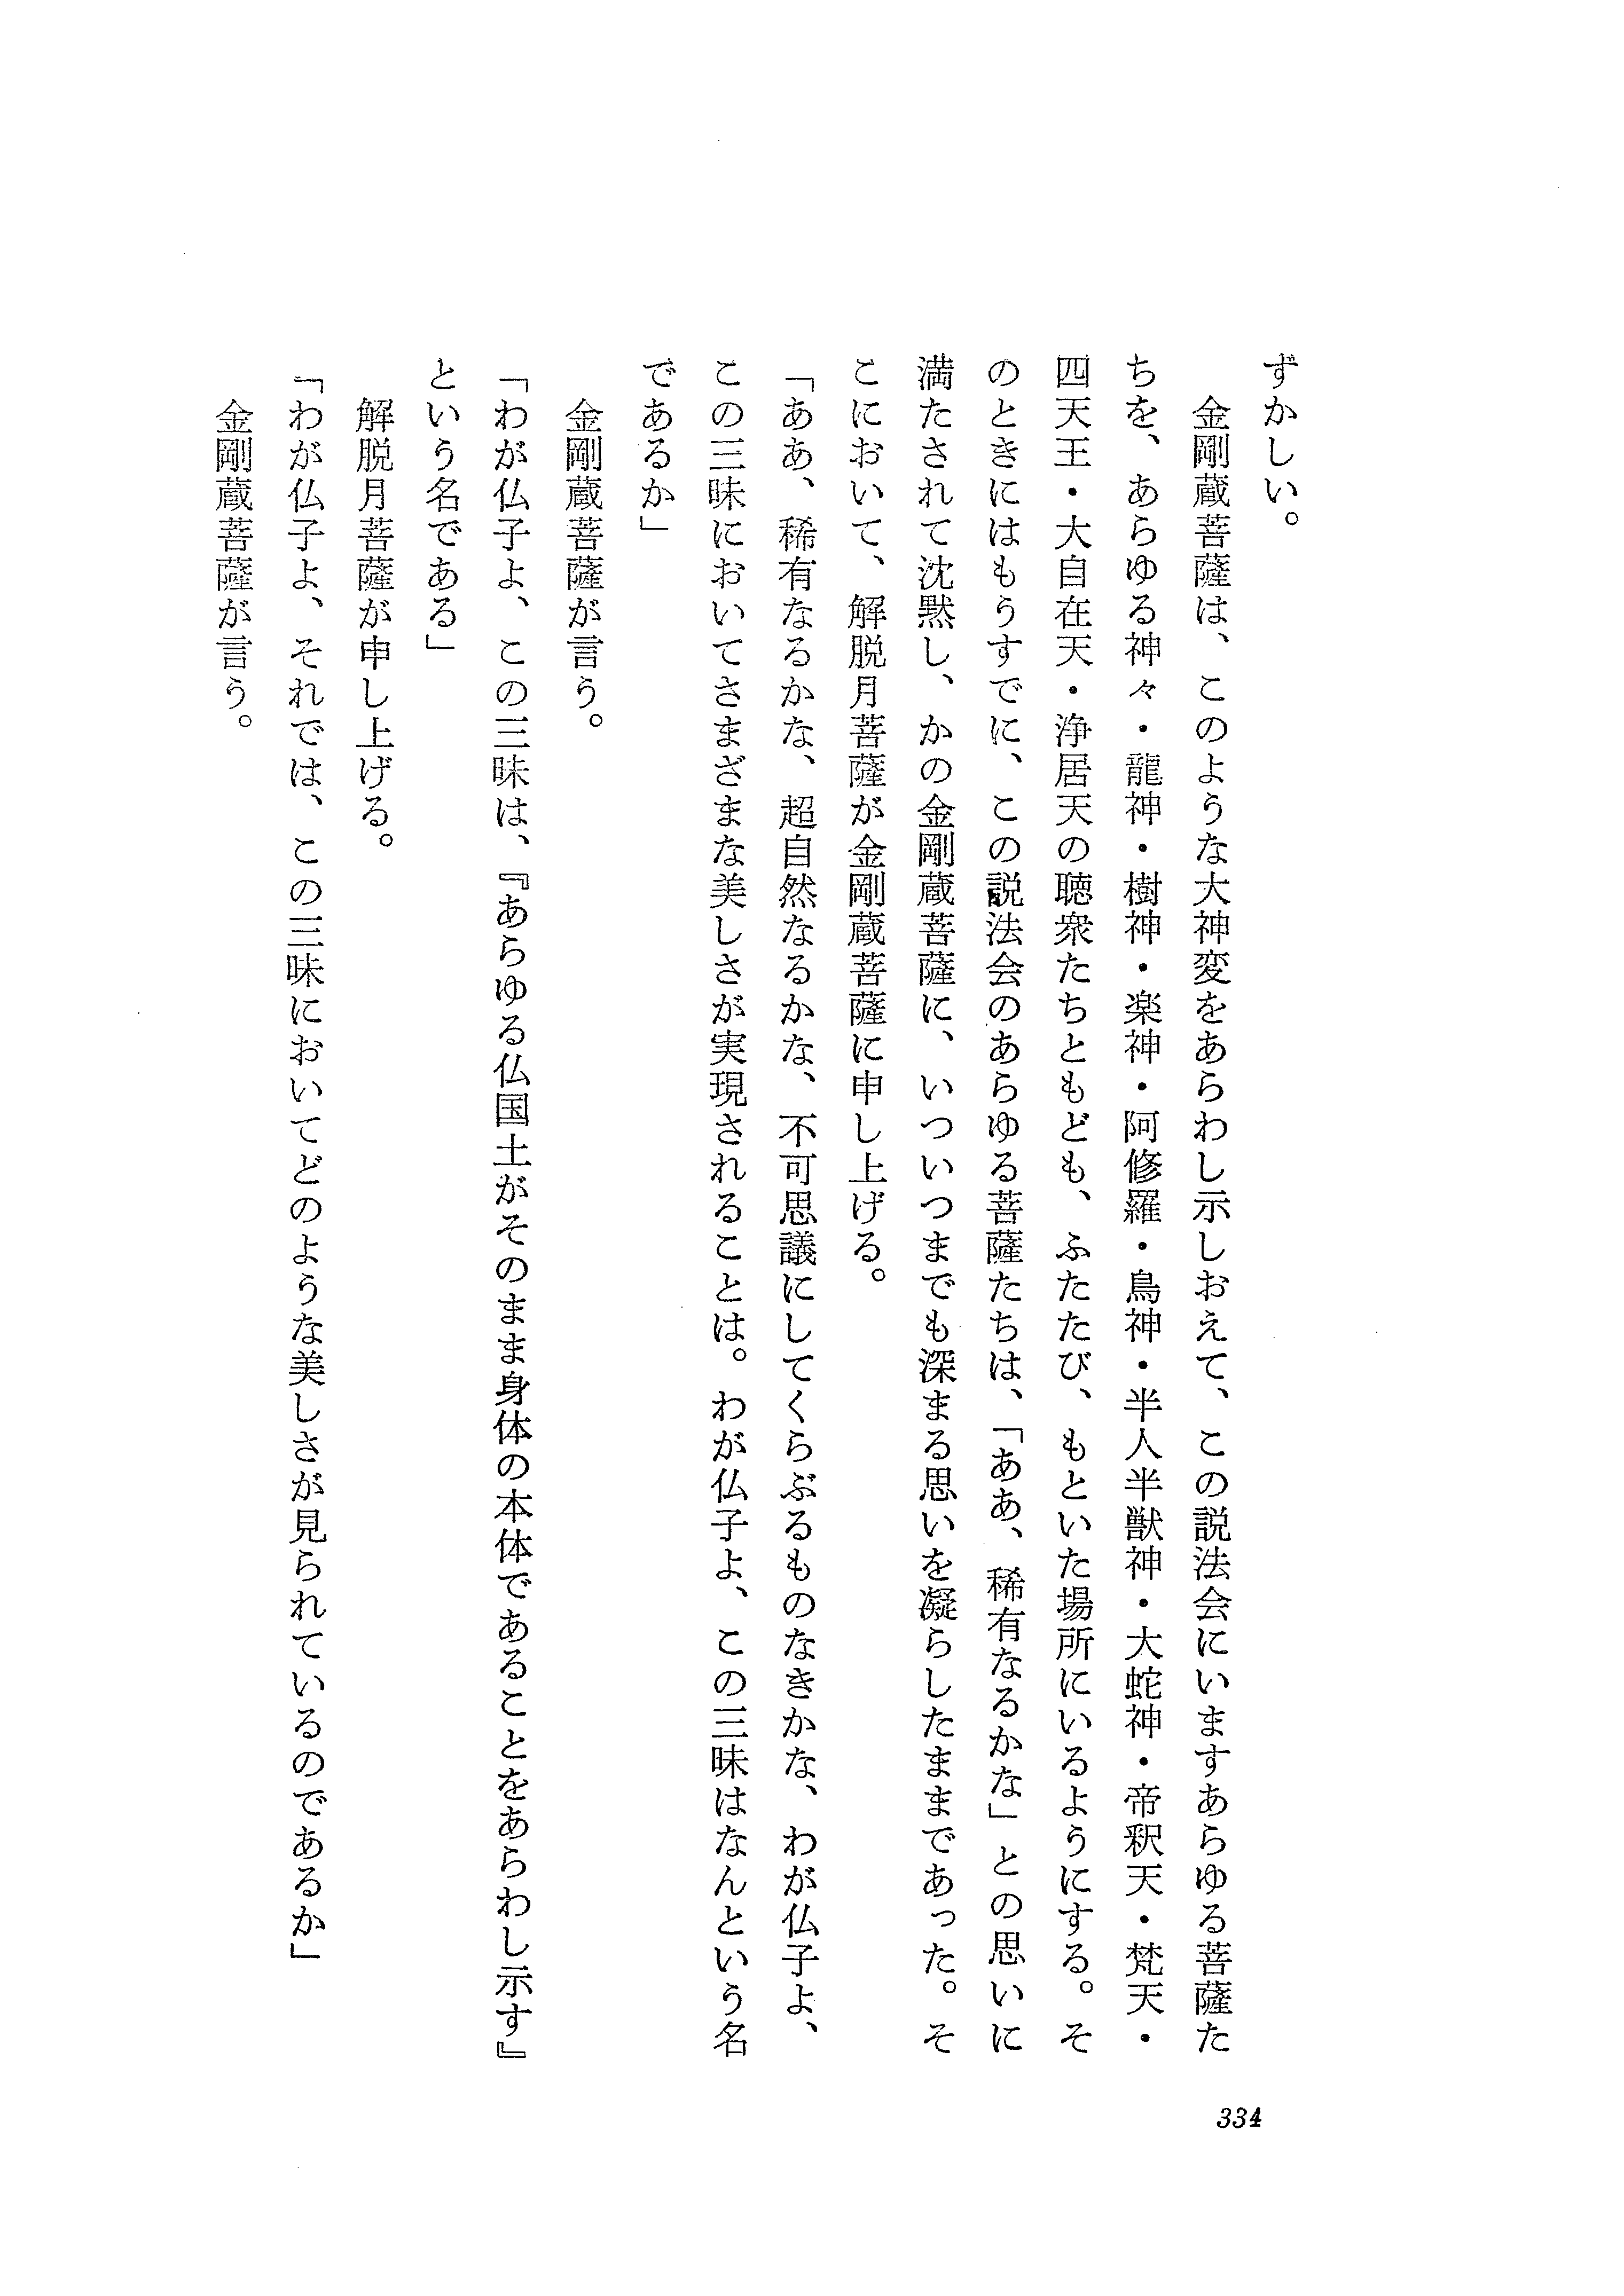 ずかしい。
　金剛蔵菩薩は、このような大神変をあらわし示しおえて、この説法会にいますあらゆる菩薩た
ちを、あらゆる神々・龍神・樹神・楽神・阿修羅・鳥神・半人半獣神・大蛇神・帝釈天・梵天・
四天王・大自在天・浄居天の聴衆たちともども、ふたたび、もといた場所にいるようにする。そ
のときにはもうすでに、この説法会のあらゆる菩薩たちは、「ああ、稀有なるかな」との思いに
満たされて沈黙し、かの金剛蔵菩薩に、いついつまでも深まる思いを凝らしたままであった。そ
こにおいて、解脱月菩薩が金剛蔵菩薩に申し上げる。
「ああ、稀有なるかな、超自然なるかな、不可思議にしてくらぶるものなきかな、わが仏子よ、
この三昧においてさまざまな美しさが実現されることは。わが仏子よ、この三昧はなんという名
であるか」
　金剛蔵菩薩が言う。
「わが仏子よ、この三昧は、『あらゆる仏国土がそのまま身体の本体であることをあらわし示す』
という名である」
　解脱月菩薩が申し上げる。
「わが仏子よ、それでは、この三昧においてどのような美しさが見られているのであるか」
　金剛蔵菩薩が言う。
334